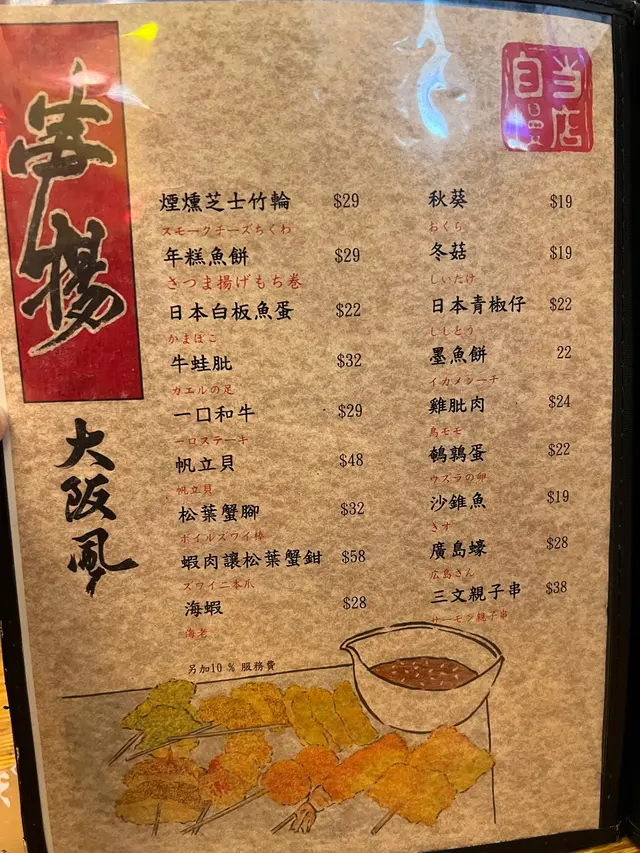 串揚
大阪風
当店自慢
煙燻芝士竹輪 $29
スモークチーズちくわ
年糕魚餅 $29
さつま揚げもち巻
日本白板魚蛋 $22
かまぼこ
牛蛙肶 $32
カエルの足
一口和牛 $29
一口ステーキ
帆立貝 $48
帆立貝
松葉蟹腳 $32
ボイルズワイ棒
蝦肉讓松葉蟹鉗 $58
ズワイ二本爪
海蝦 $28
海老
秋葵 $19
おくら
冬菇 $19
しいたけ
日本青椒仔 $22
ししとう
墨魚餅 22
イカメンーチ
雞肶肉 $24
鳥モモ
鵪鶉蛋 $22
ウズラの卵
沙錐魚 $19
きす
廣島蠔 $28
広島さん
三文親子串 $38
サーモン親子串
另加10 % 服務費